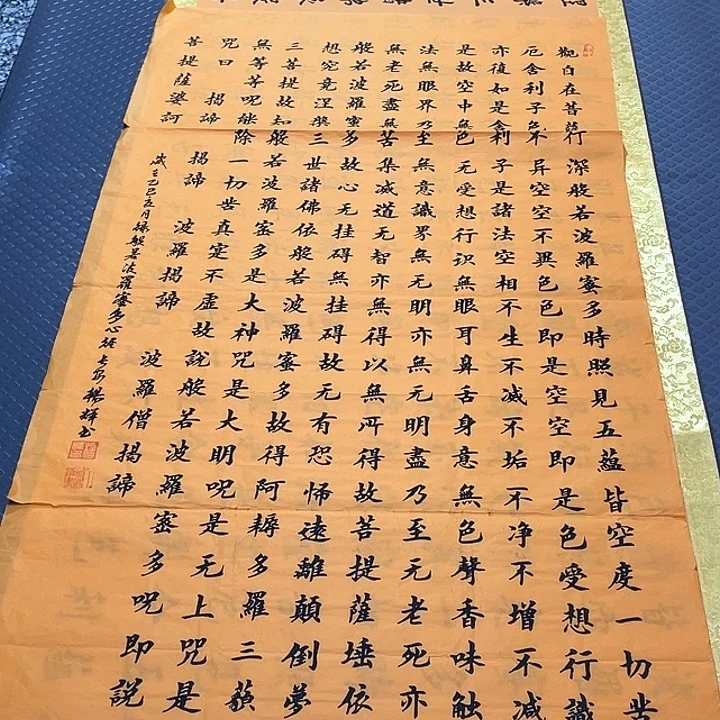 觀自在菩薩行深般若波羅蜜多時照見五蘊皆空度一切苦
厄舍利子色不异空空不異色色即是空空即是色受想行識
亦復如是舍利子是諸法空相不生不滅不垢不净不增不減
是故空中無色无受想行识無眼耳鼻舌身意無色聲香味触
法無眼界乃至無意識界無无明亦無无明盡乃至无老死亦
無老死盡無苦集滅道无智亦無得以無所得故菩提薩埵依
般若波羅蜜多故心无挂碍無挂碍故无有恐怖遠離顛倒夢
想究竟涅槃三世諸佛依般若波羅蜜多故得阿耨多羅三藐
三菩提故知般若波羅蜜多是大神咒是大明咒是无上咒是
無等等咒能除一切苦真寔不虛故說般若波羅蜜多咒即説
咒曰 揭諦 揭諦 波羅揭諦 波羅僧揭諦
菩提薩婆訶
乙巳 月 般若波羅蜜多心經 書